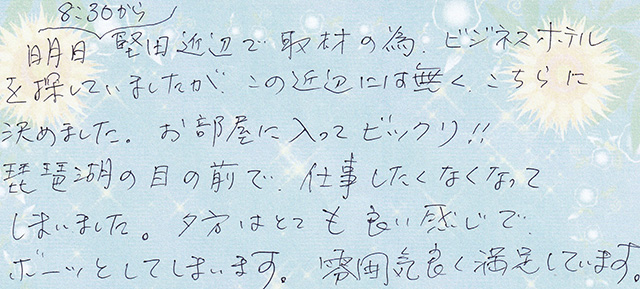 8:30から
明日 堅田近辺で取材の為、ビジネスホテル
を探していましたが、この近辺には無く、こちらに
決めました。お部屋に入ってビックリ!!
琵琶湖の目の前で、仕事したくなくなって
しまいました。夕方はとても良い感じで、
ボーッとしてしまいます。雰囲気良く満足しています。